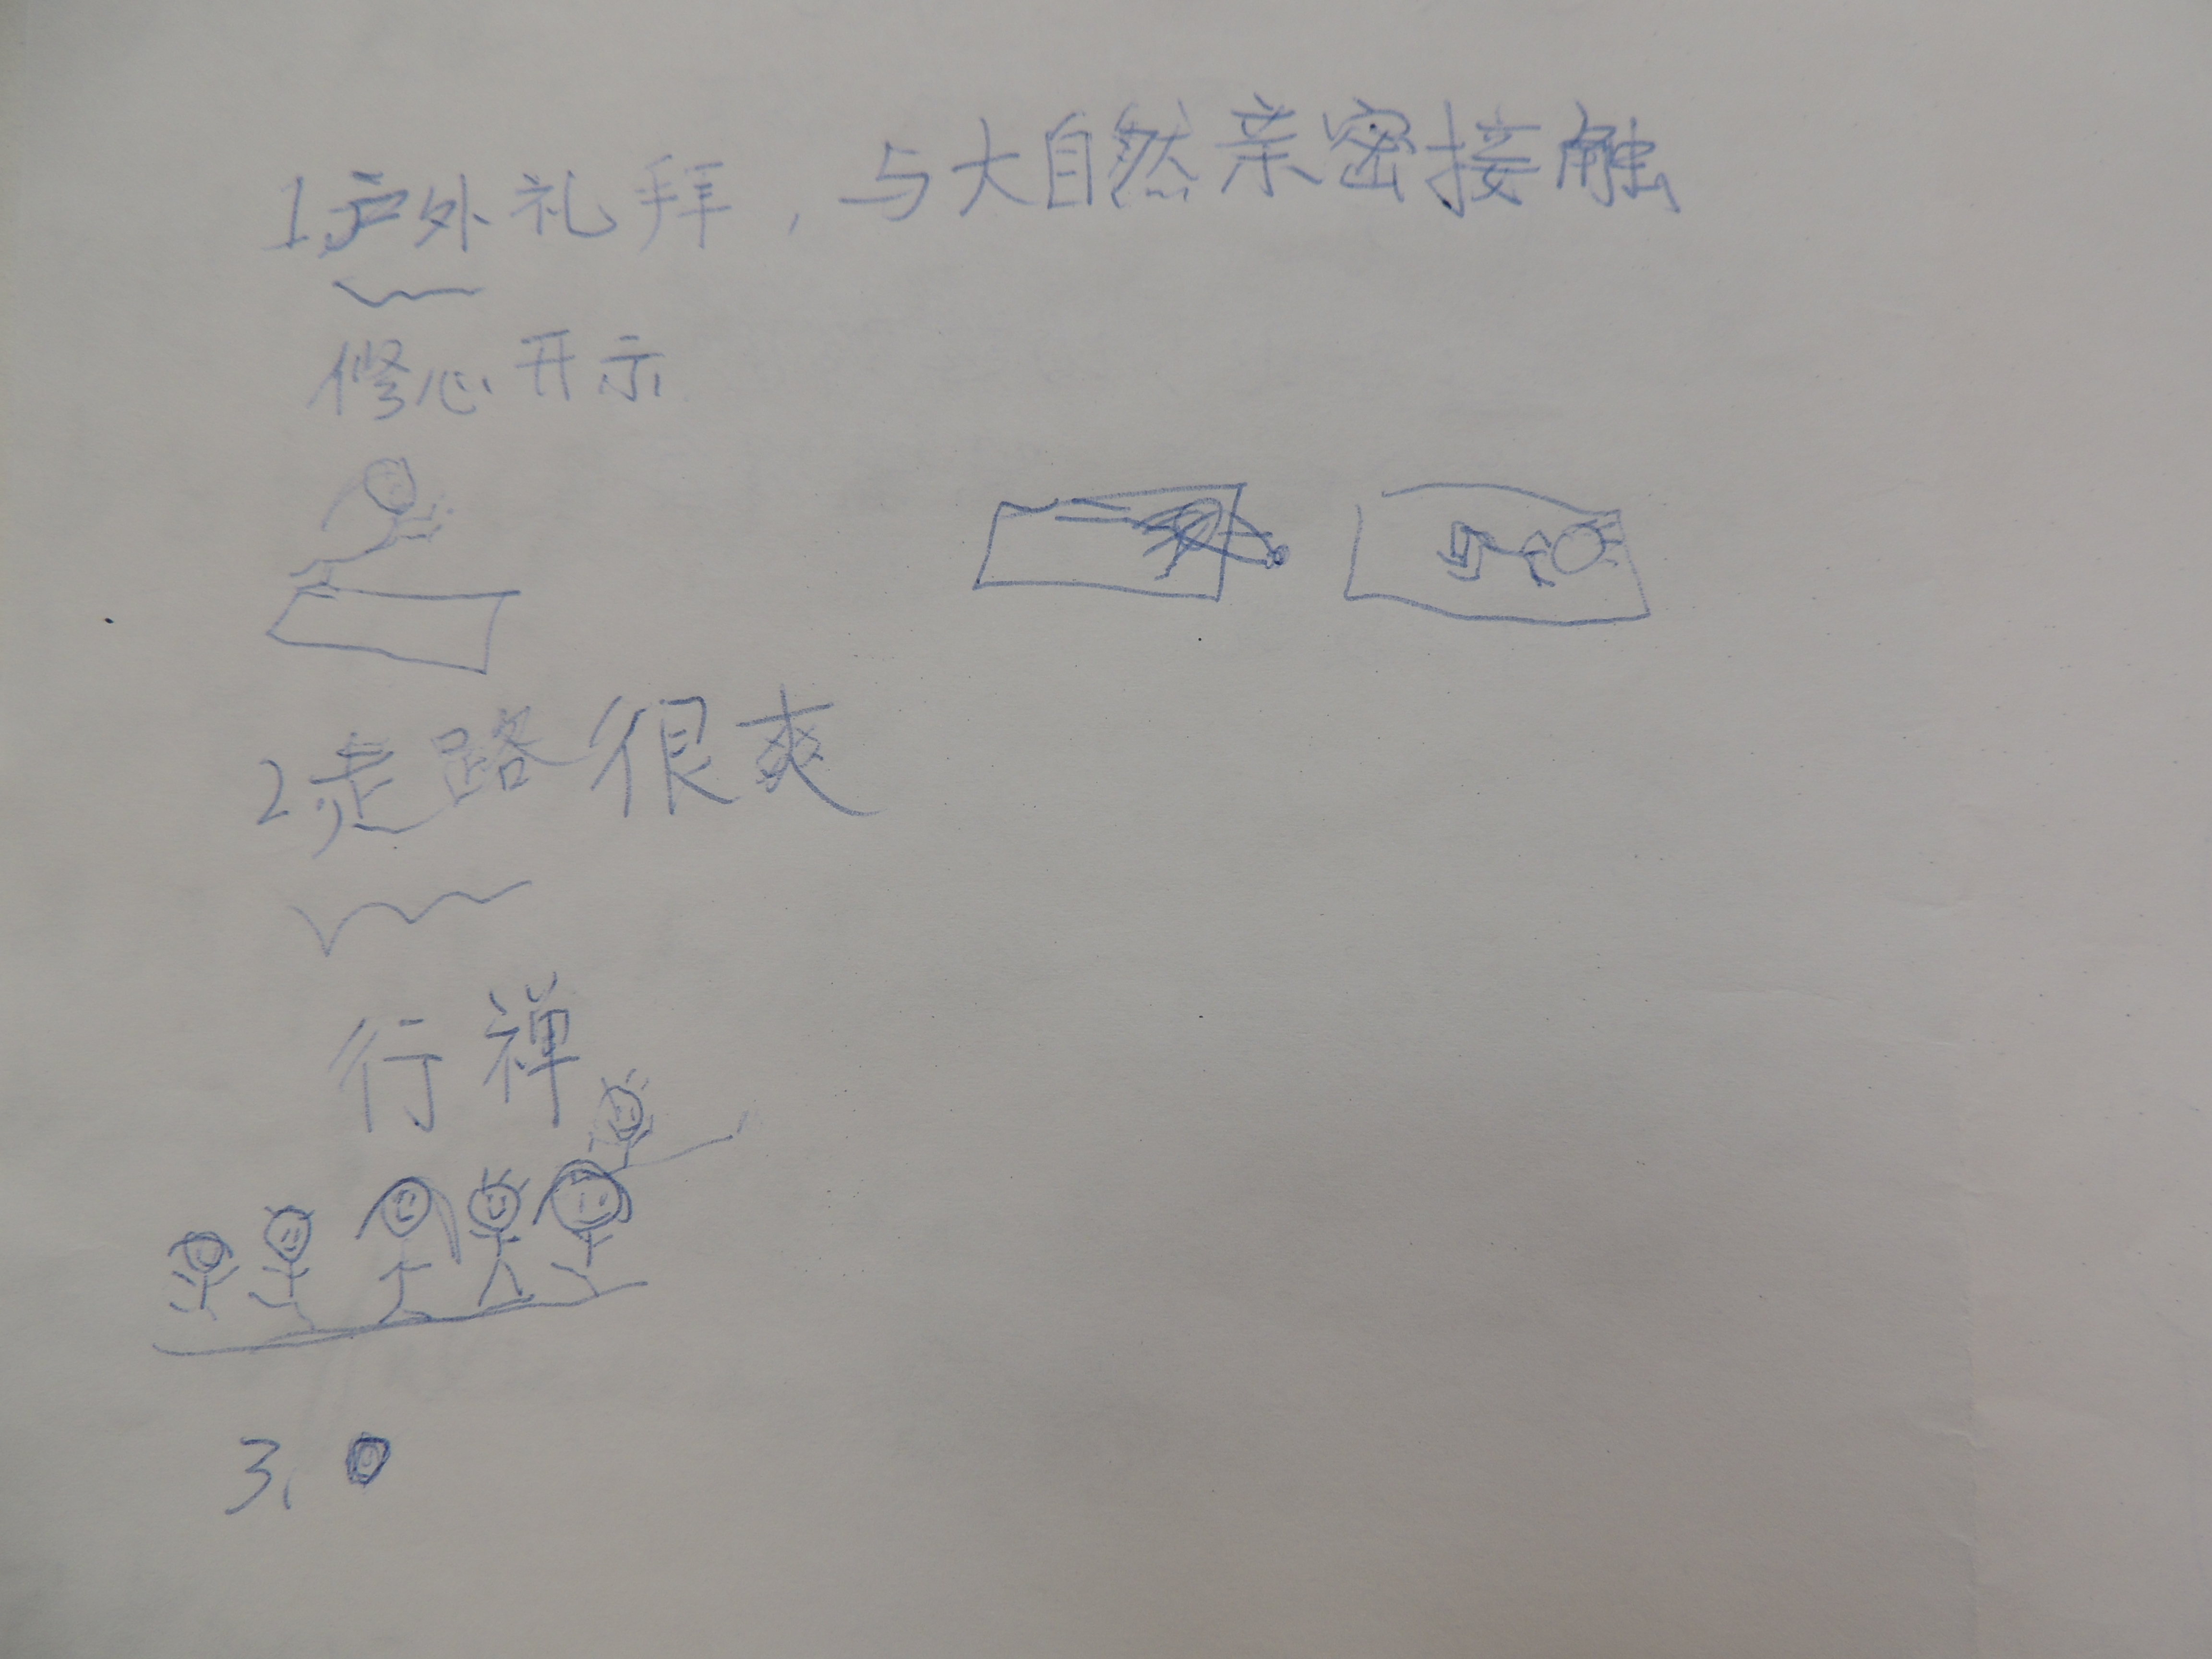 1.户外礼拜，与大自然亲密接触
修心开示
2.走路很爽
行禅
3.